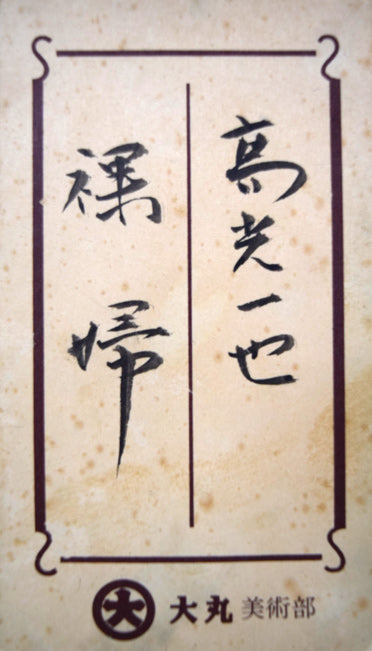 高光一也
裸婦
大 大丸 美術部